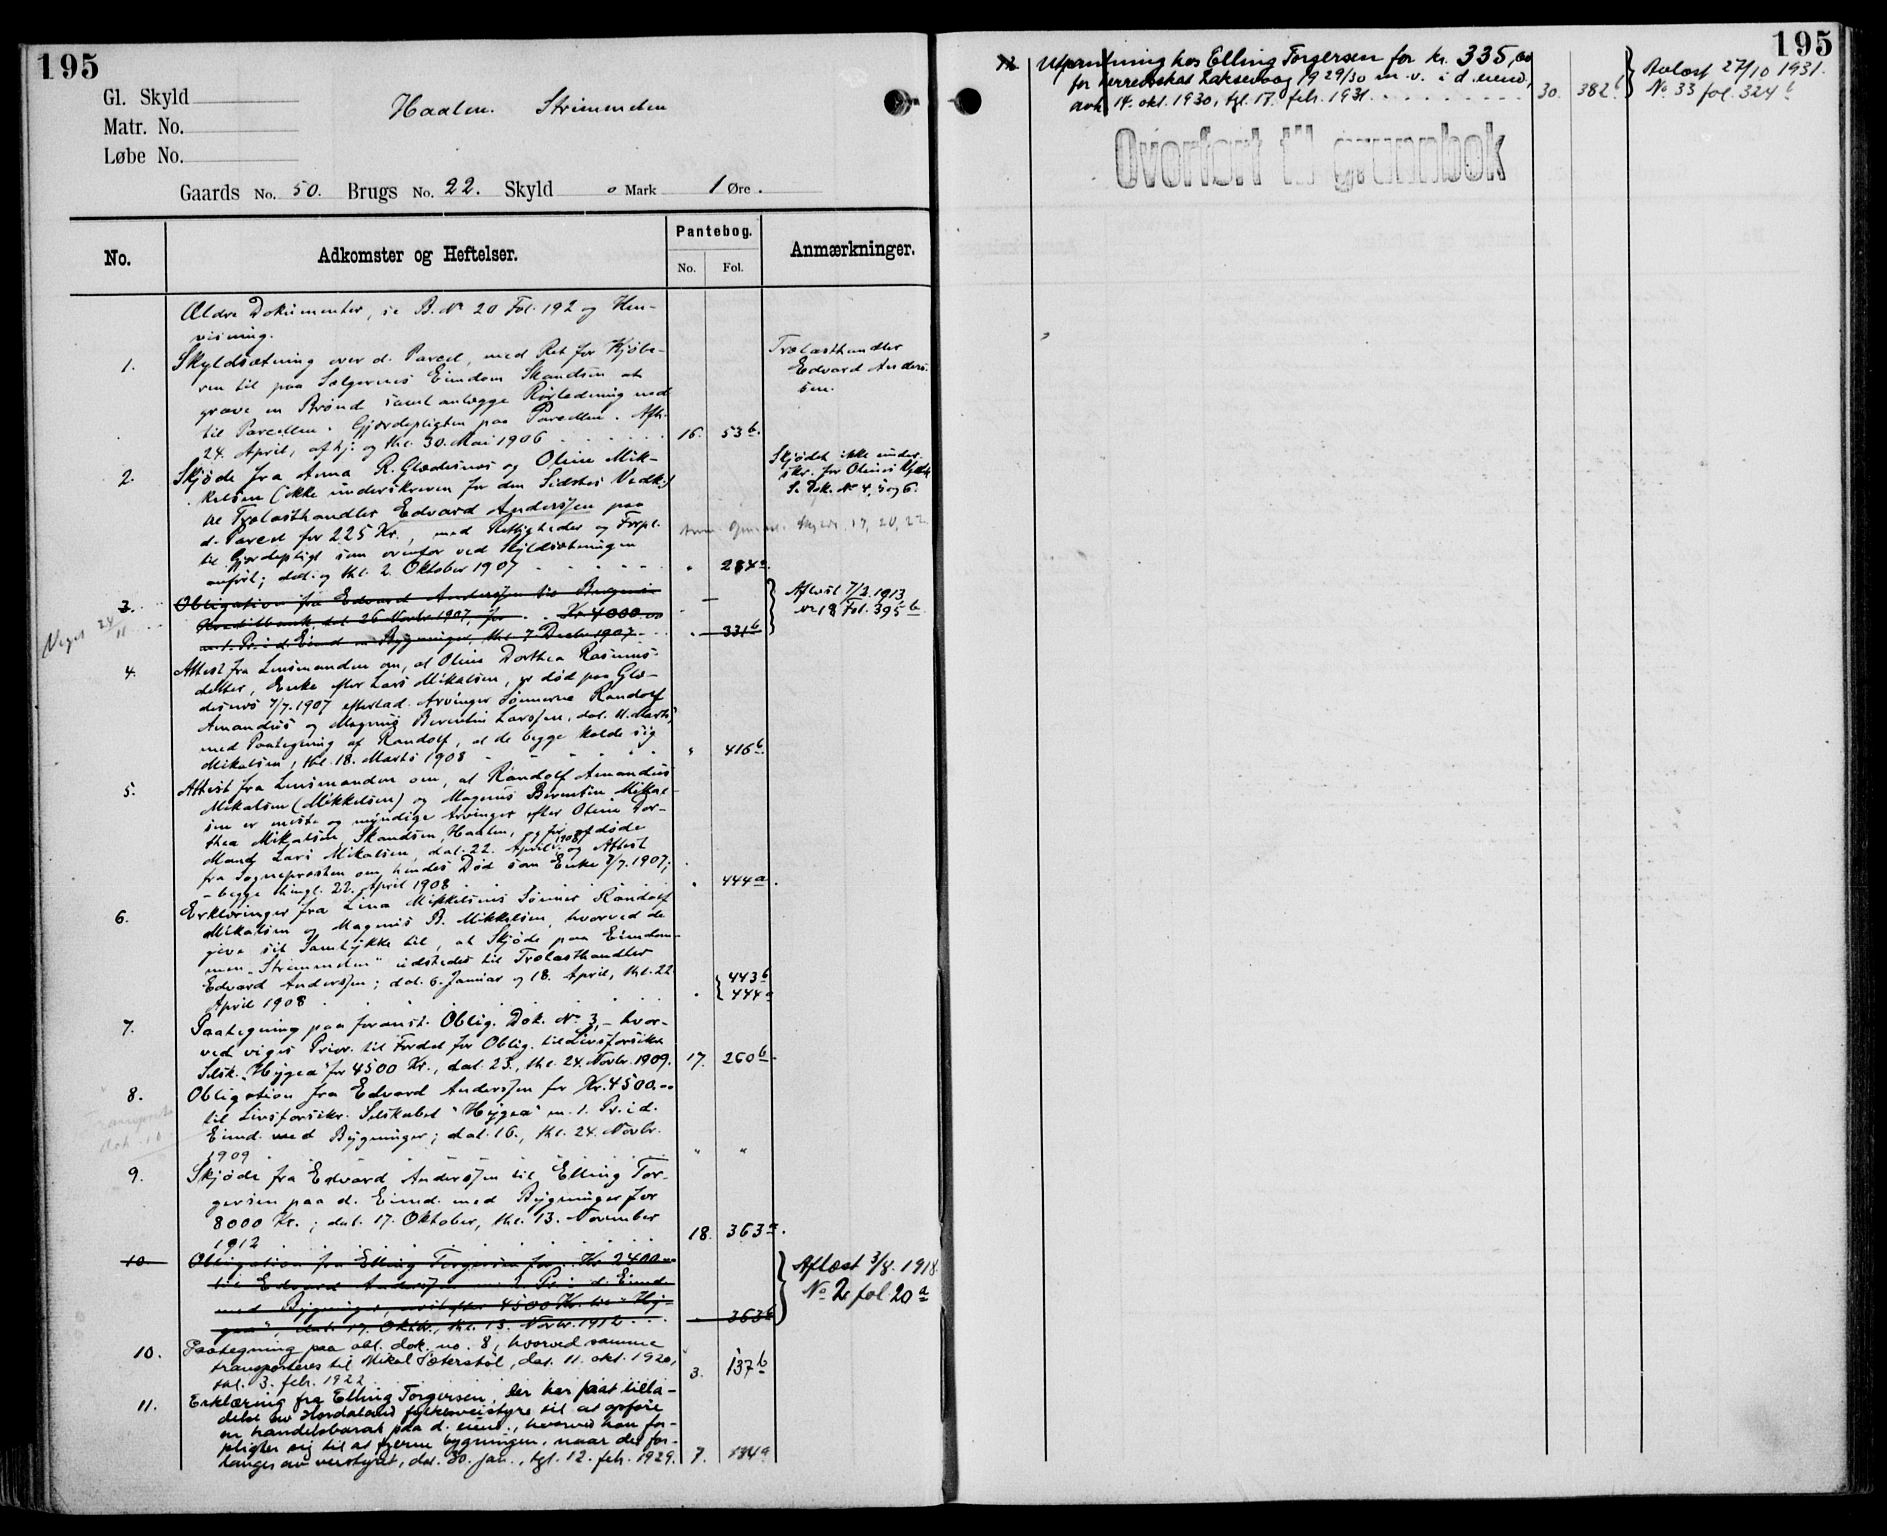 195
Gl. Skyld
Matr. No.
Løbe No.
Haalen. Strimmelen
Gaards No. 50. Brugs No. 22. Skyld 0 Mark 1 Øre.
No. Adkomster og Heftelser. Pantebog. No. Fol. Anmærkninger.
Ældre Dokumenter, se B. No 20 Fol. 192 og Hen-
visning.
1. Skyldsætning over d. Parcel, med Ret for Kjøbe-
ren til paa Sælgernes Eiendom Skandsen at
grave en Brønd samt anlægge Rørledning ned
til Parcellen. Gjærdepligten paa Parcellen. Afh.
24. April, afhj. og thl. 30. Mai 1906 16. 53b.
Trælasthandler
Edvard Anders-
sen.
2. Skjøde fra Anna R. Gladesnes og Oline Mik-
kelsen (ikke underskreven for den Sidstes Vedk.)
til Trælasthandler Edvard Anderssen paa
d. Parcel for 225 Kr., med Rettigheder og Forpl.
til Gjærdepligt som ovenfor ved Skyldsætningen
anført; dat. og thl. 2. Oktober 1907 " 284a.
Skjødet ikke under-
skr. for Olines Vedk.
Se Dok. No 4, 5 og 6.
17, 20, 22
3. Obligation fra Edvard Anderssen til Bergens
Kreditbank, dat. 26 Novbr 1907, for Kr 4000.00
m. 1. Pr. i d. Eiend. m. Bygninger, thl. 7 Decbr 1907 " 331b
Aflæst 7/2.1913,
No 18 Fol. 395b.
Viget 24/11
4. Attest fra Lensmanden om, at Oline Dorthea Rasmus-
datter, Enke efter Lars Mikalsen, er død paa Gla-
desnes 7/7.1907 efterlad. Arvinger Sønnerne Randolf
Amandus og Magnus Berentin Larssen, dat. 11. Marts,
med Paategning af Randolf, at de begge kalde sig
Mikalsen, thl. 18. Marts 1908 " 416b.
5. Attest fra Lensmanden om, at Randolf Amandus
Mikalsen (Mikkelsen) og Magnus Berentin Mikal-
sen er eneste og myndige Arvinger efter Oline Dor-
thea Mikalsen, Skandsen, Haalen, og før afdøde
Mand Lars Mikalsen, dat. 22. April 1908, og Attest
fra Sognepresten om hendes Død som Enke 7/7.1907;
- begge thingl. 22. April 1908 " 444a.
6. Erklæringer fra Lina Mikkelsens Sønner Randolf
Mikalsen og Magnus B. Mikkelsen, hvorved de
give sit Samtykke til, at Skjøde paa Eiendom-
men „Strimmelen" udstedes til Trælasthandler
Edvard Anderssen; dat. 6. Januar og 18. April, thl. 22
April 1908 " 443b 444a
7. Paategning paa foranst. Oblig. Dok. No 3, - hvor-
ved viges Prior. til Fordel for Oblig. til Livsforsikr.
Selsk. „Hygea" for 4500 Kr., dat. 23., thl. 24. Novbr. 1909. 17. 260b.
8. Obligation fra Edvard Anderssen for Kr. 4500.00
til Livsforsikr. Selskabet "Hygea" m. 1. Pr. i d.
Eiend. med Bygninger; dat. 16., thl. 24. Novbr.
1909 " "
dok. 10
9. Skjøde fra Edvard Anderssen til Elling Tor-
gersen paa d. Eiend. med Bygninger for
8000 Kr.; dat. 17. Oktober, thl. 13. November
1912 18. 363a.
10 Obligation fra Elling Torgersen for Kr 2400.00
til Edvard Anderssen m. 2. Pr. i d. Eiend.
med Bygninger, næst efter 4500 Kr. til "Hy-
gea", dat. 17. Oktbr., thl. 13. Novbr. 1912 " 363b
Aflæst 3/8. 1918
No 2 fol 20a
10. Paategning paa obl. dok. no. 8, hvorved samme
transporteres til Mikal Sæterstøl, dat. 11. okt. 1920,
tgl. 3. febr. 1922 3. 137b
11. Erklæring fra Elling Torgersen, der har faat tilla-
delse av Hordaland fylkesveistyre til at opføre
en handelsbarak paa d. eiend., hvorved han for-
pligter sig til at fjerne bygningen, naar det for-
langes av veistyret, dat. 30. jan., tgl. 12. febr. 1929. 7. 134a
195
12 Utpantning hos Elling Torgersen for kr. 335,00
for herredsskat Laksevaag 1929/30 m. v. i d. eiend,
avh. 14. okt. 1930, tgl. 17. febr. 1931 30. 382b
Avlæst 27/10 1931.
No 33 fol. 324b
Overført til grunnbok